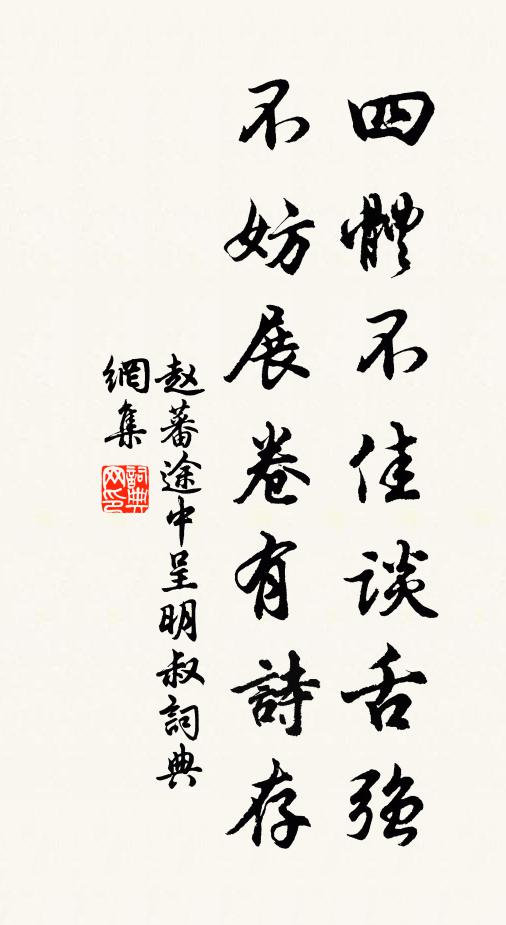 四體不佳談舌強
不妨展卷有詩存
赵蕃途中呈明叔詞典
網集
詞典網印